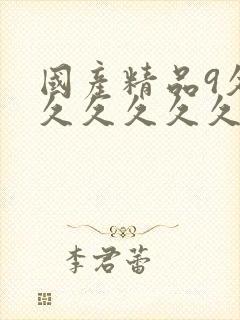 國産精品9久
久久久久久
李君蕾